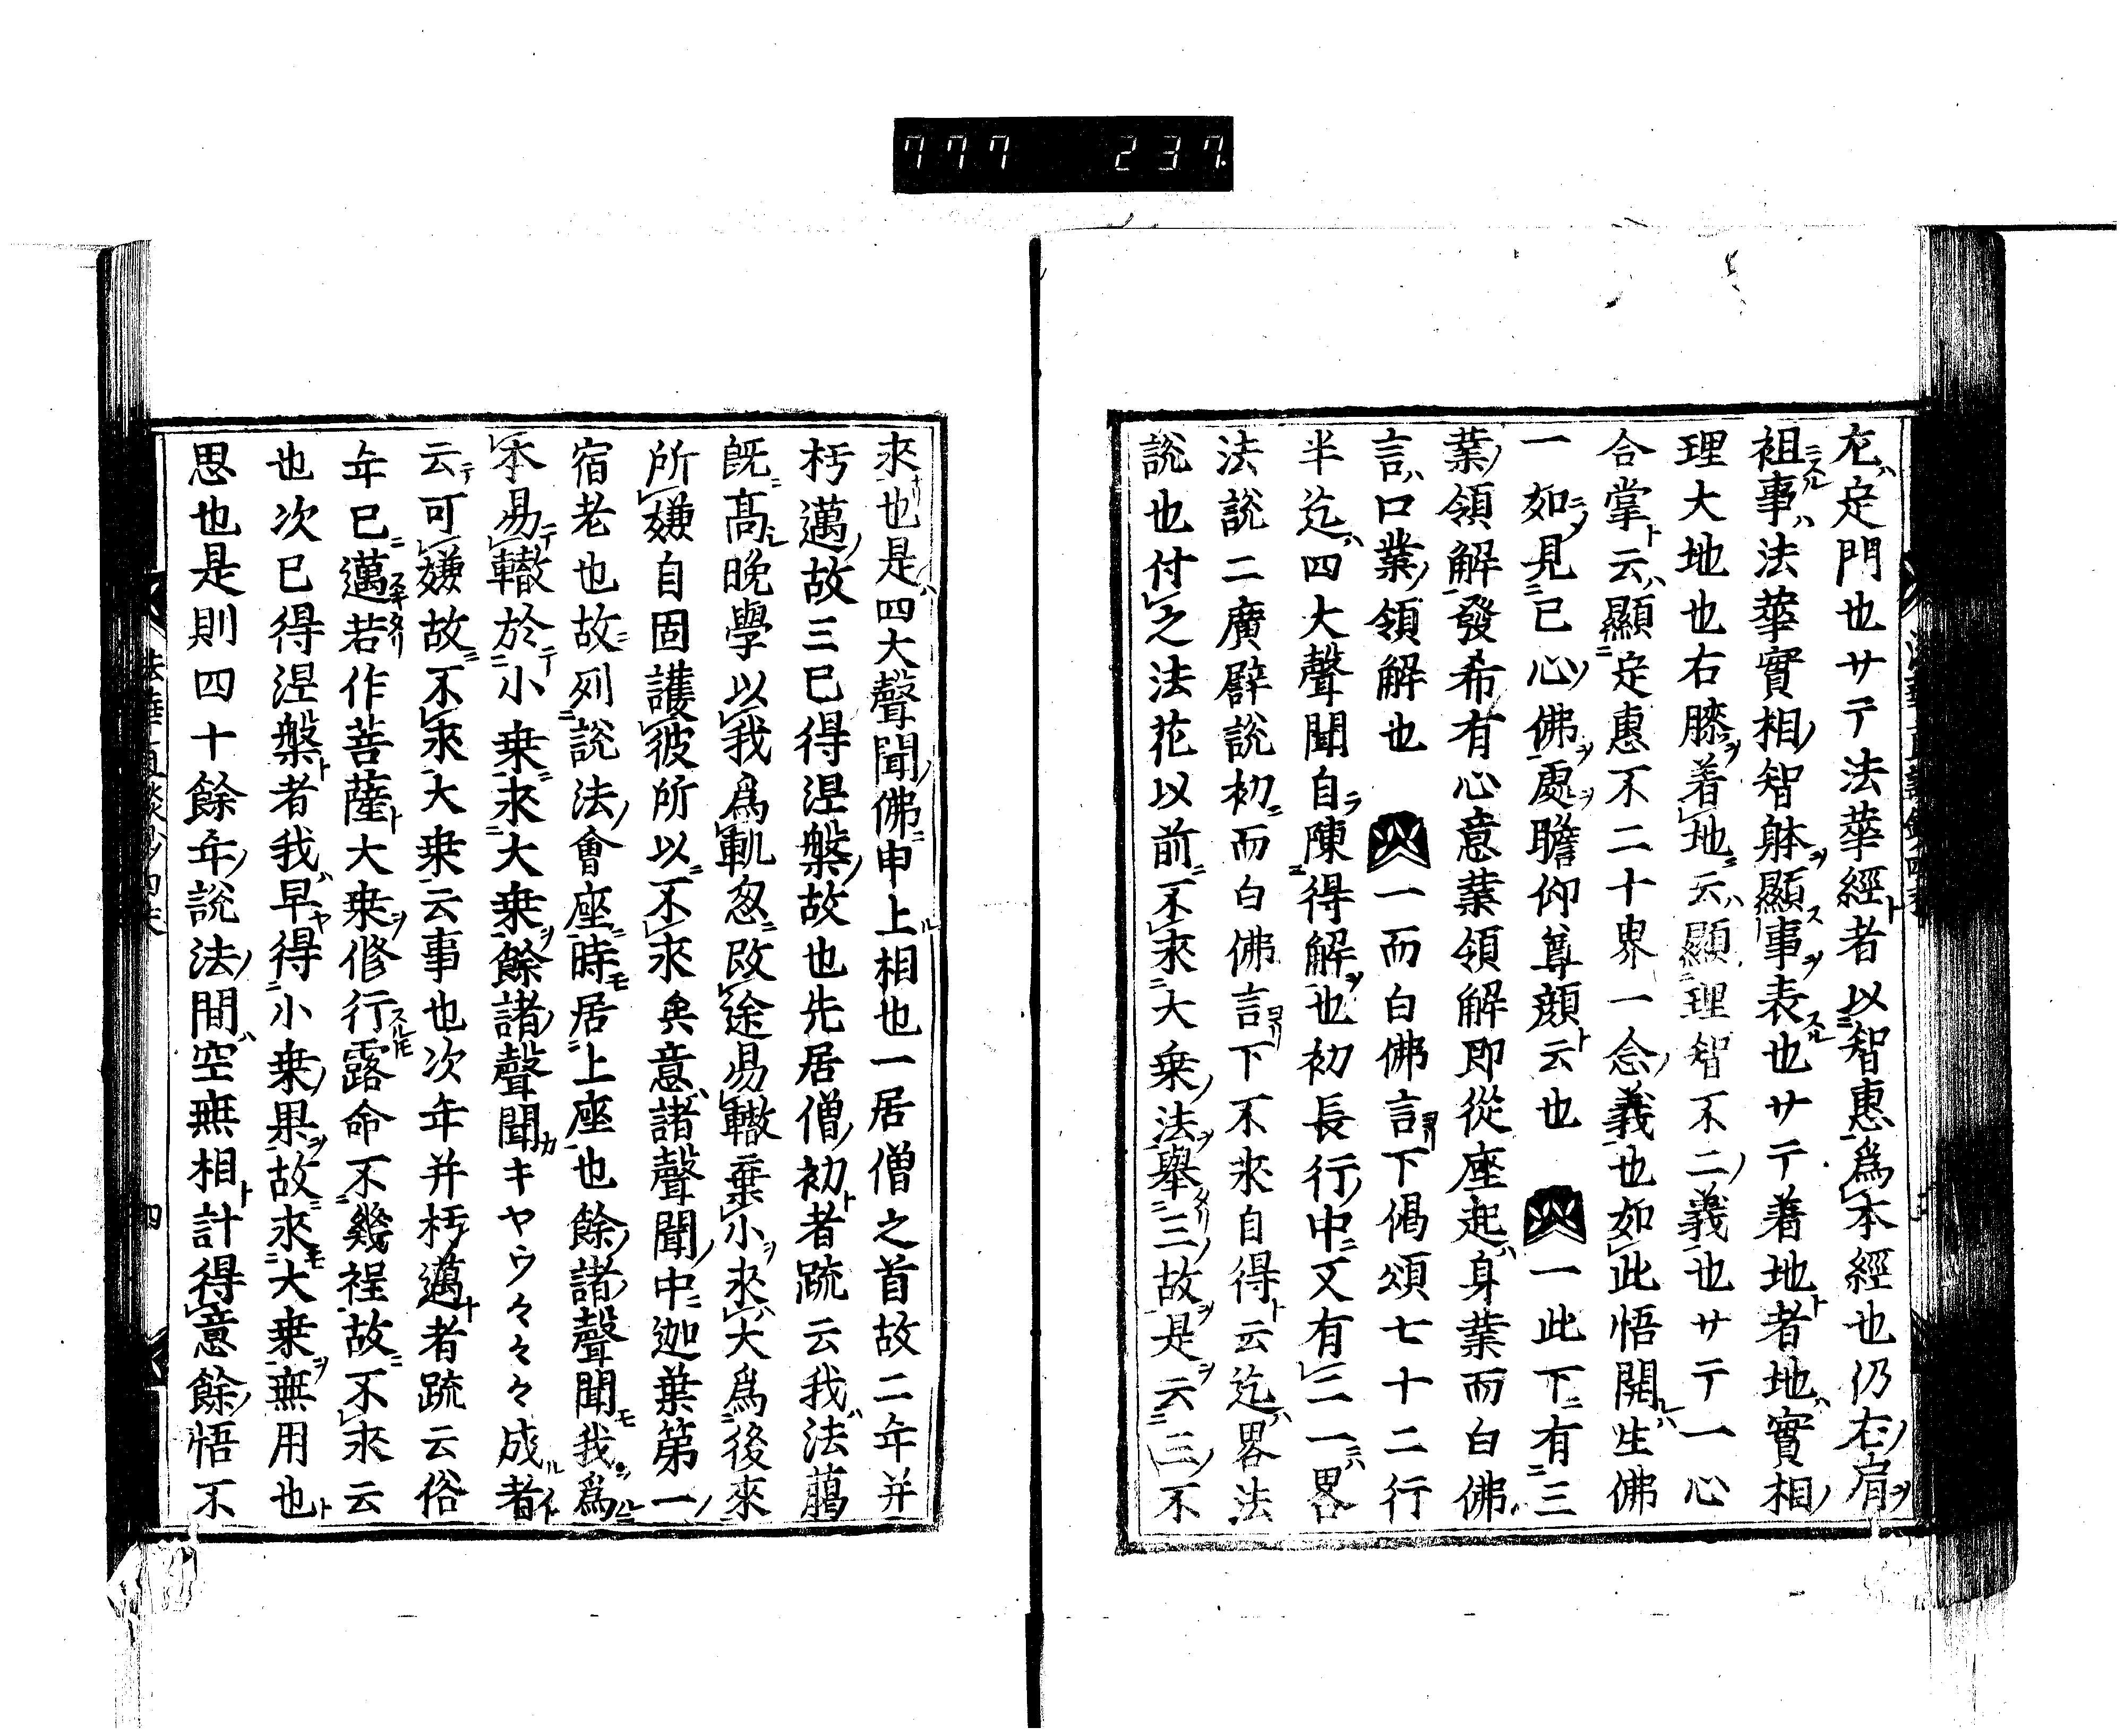 777 237
左定門也サテ法華經者以智惠爲本經也仍右肩
袒事法華實相智躰顯事表也サテ著地者地實相
理大地也右膝着地云顯理智不二義也サテ一心
合掌云顯定惠不二十界一念義也如此悟開生佛
一如見已心佛處瞻仰尊顔云也 一此下有三
業領解發希有心意業領解即從座起身業而白佛
言口業領解也 一而白佛言下偈頌七十二行
半迄四大聲聞自陳得解也初長行中又有二一畧
法說二廣譬說初而白佛言下不求自得云迄畧法
說也付之法花以前不求大乗法擧三故是云三不
求也是四大聲聞佛申上相也一居僧之首故二年并
朽邁故三已得涅槃故也先居僧初者䟽云我法﨟
既高晩學以我爲軌忽改途易轍棄小求大爲後來
所嫌自固護彼所以不求矣意諸聲聞中迦葉第一
宿老也故列說法會座時居上座也餘諸聲聞我爲
本易轍於小乗求大乗餘諸聲聞キヤウ々々々成者
云可嫌故不求大乗云事也次年并朽邁者䟽云俗
年已邁若作菩薩大乗修行露命不幾程故不求云
也次已得涅槃者我早得小乗果故求大乗無用也
思也是則四十餘年說法間空無相計得意餘悟不